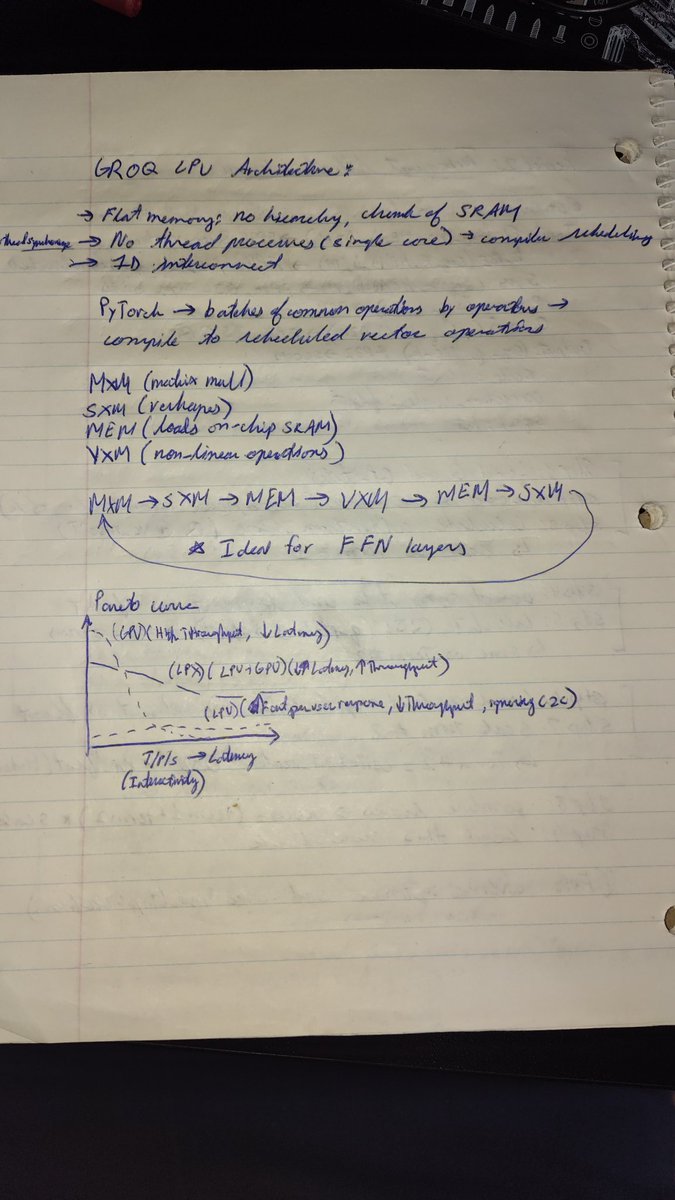 GROQ LPU Architecture:
→ Flat memory: no hierarchy, chunk of SRAM
→ No thread processes (single core) → compiler scheduling
→ 1D interconnect
PyTorch → batches of common operations by operations →
compile to scheduled vector operations
MXM (matrix mull)
SXM (reshapes)
MEM (loads on-chip SRAM)
VXM (non-linear operations)
MXM → SXM → MEM → VXM → MEM → SXM
* Ideal for FFN layers
Pareto curve
(GPU) (High Throughput, ↓ Latency)
(LPX) (LPU+GPU) (Latency, ↑ Throughput)
(LPU) (Fast per user response, ↓ Throughput, ignoring C2C)
T/P/S → Latency
(Interactivity)